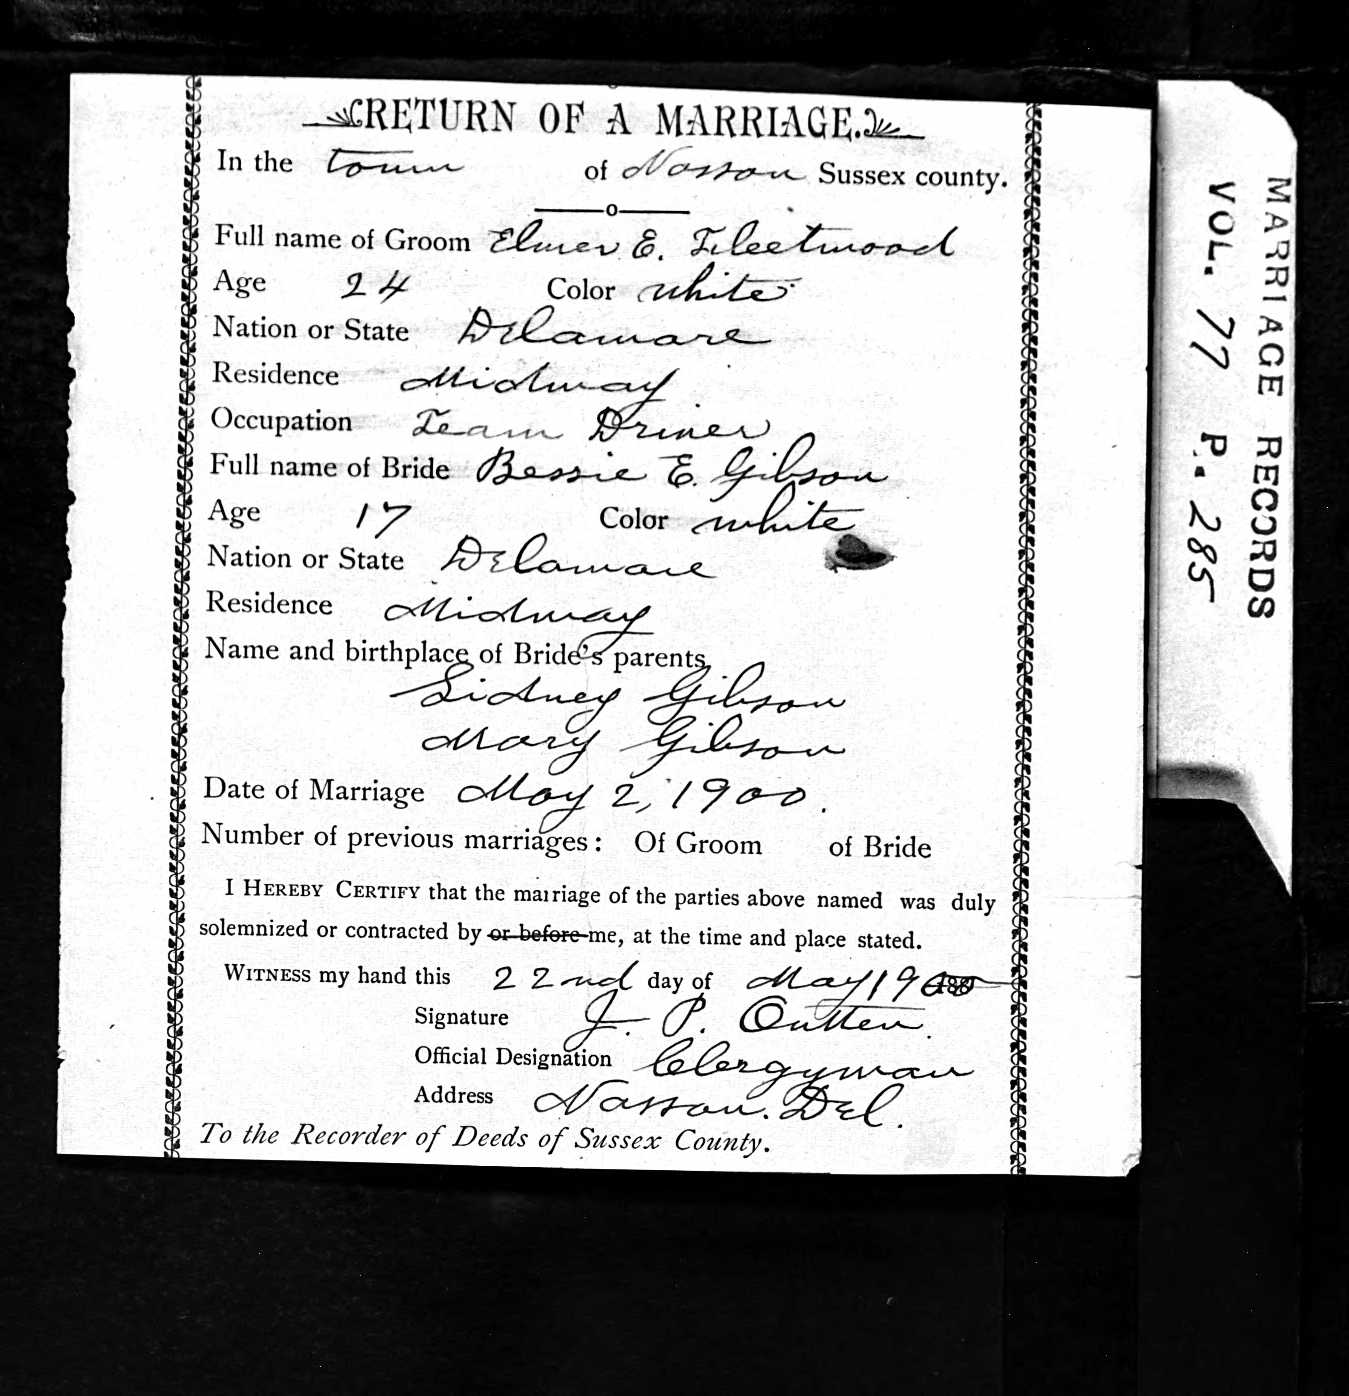 RETURN OF A MARRIAGE.
In the town of Nassau Sussex county.
Full name of Groom Elmer E. Fleetwood
Age 24 Color white
Nation or State Delaware
Residence Midway
Occupation Team Driver
Full name of Bride Bessie E. Gibson
Age 17 Color white
Nation or State Delaware
Residence Midway
Name and birthplace of Bride's parents
Sidney Gibson
Mary Gibson
Date of Marriage May 2, 1900.
Number of previous marriages: Of Groom of Bride
I HEREBY CERTIFY that the marriage of the parties above named was duly
solemnized or contracted by or before me, at the time and place stated.
WITNESS my hand this 22nd day of May 1900
Signature J. P. Outten.
Official Designation Clergyman
Address Nassau. Del.
To the Recorder of Deeds of Sussex County.
MARRIAGE RECORDS
VOL. 77 P. 285